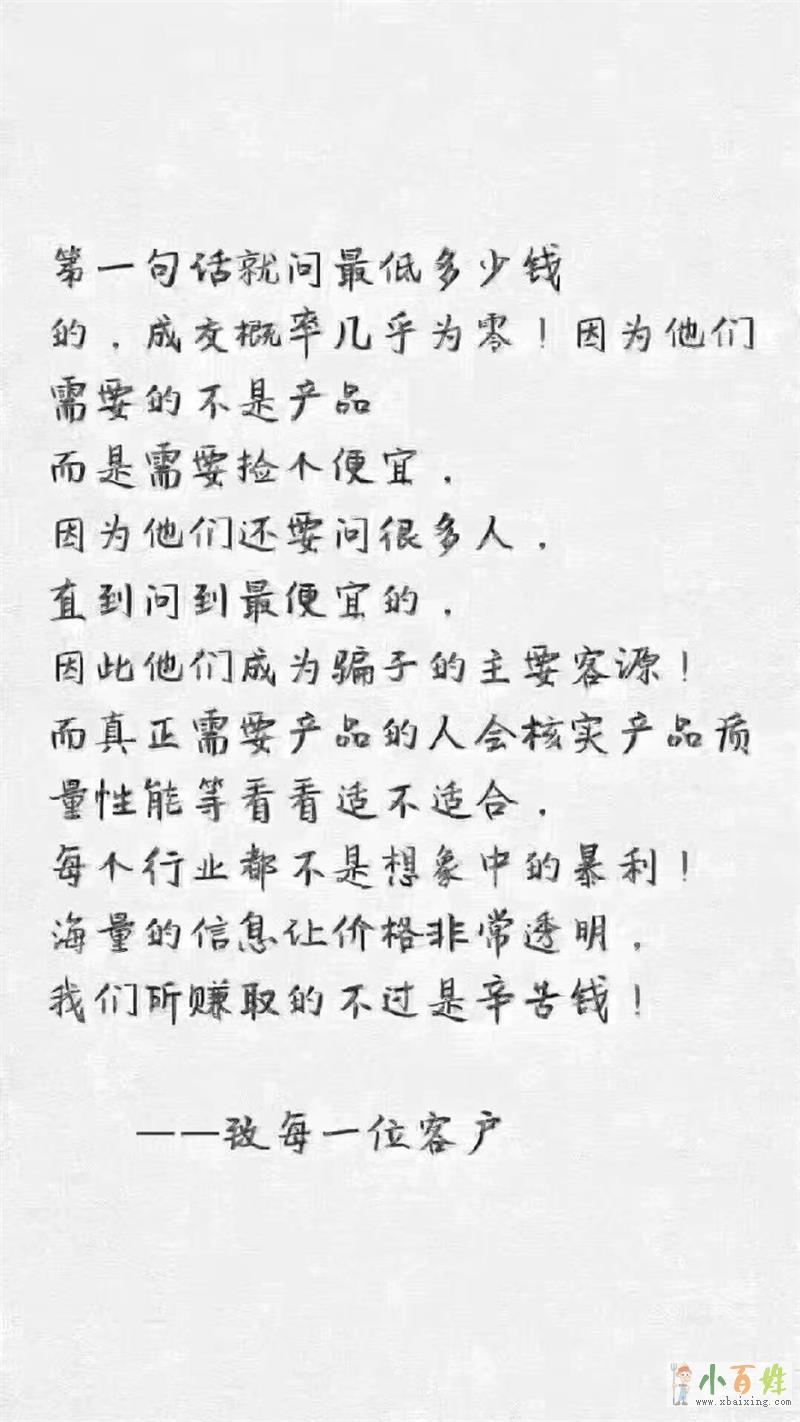 第一句话就问最低多少钱
的，成交概率几乎为零！因为他们
需要的不是产品
而是需要捡个便宜，
因为他们还要问很多人，
直到问到最便宜的，
因此他们成为骗子的主要客源！
而真正需要产品的人会核实产品质
量性能等看看适不适合，
每个行业都不是想象中的暴利！
海量的信息让价格非常透明，
我们所赚取的不过是辛苦钱！
——致每一位客户
小百姓
www.xbaixing.com